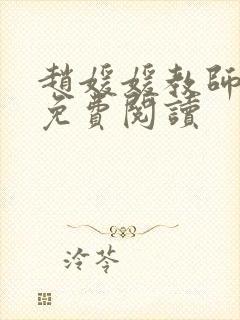 趙媛媛教師
免費閱讀
冷苓